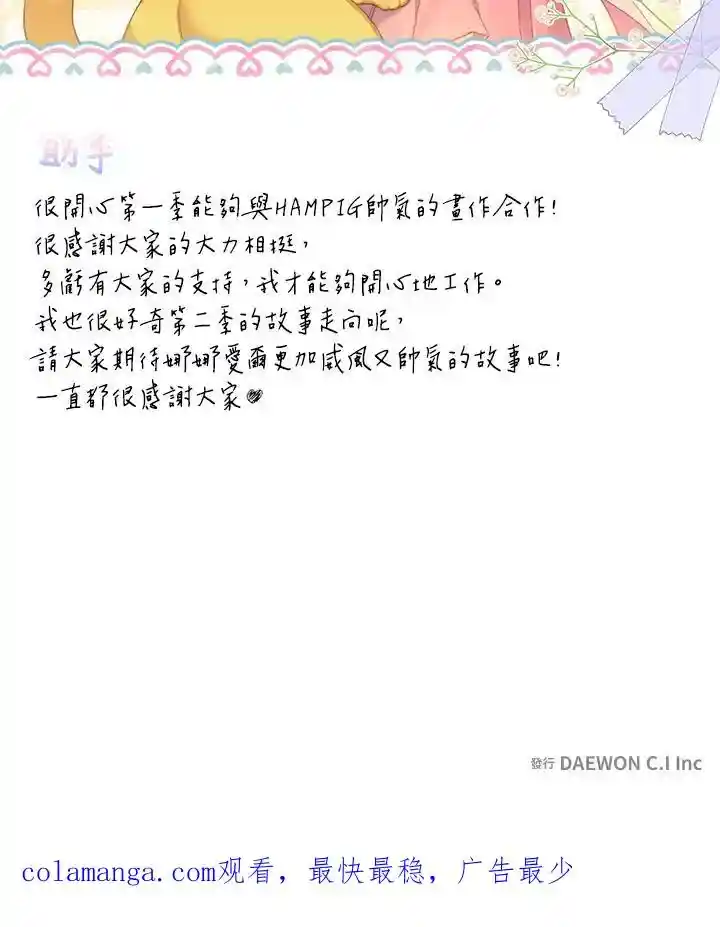 助手
很開心第一季能夠與HAMPIG帥氣的畫作合作!
很感謝大家的大力相挺，
多虧有大家的支持，我才能夠開心地工作。
我也很好奇第二季的故事走向呢，
請大家期待娜娜愛爾更加威風又帥氣的故事吧!
一直都很感謝大家♥
發行 DAEWON C.I Inc
colamanga.com观看，最快最稳，广告最少